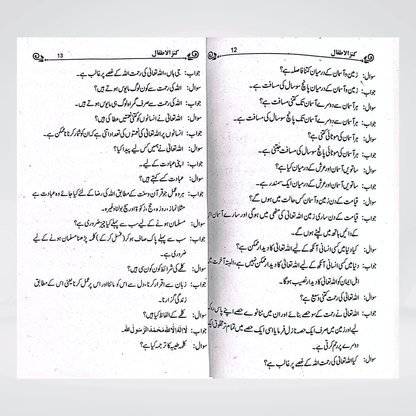 12 کنز الاطفال
سوال: زمین و آسمان کے درمیان کتنا فاصلہ ہے؟
جواب: زمین و آسمان کے درمیان پانچ سو سال کی مسافت ہے۔
سوال: ہر آسمان سے دوسرے آسمان تک کتنی مسافت ہے؟
جواب: ہر آسمان سے دوسرے آسمان تک پانچ سو سال کی مسافت ہے۔
سوال: ہر آسمان کی موٹائی کتنی ہے؟
جواب: ہر آسمان کی موٹائی پانچ سو سال کی مسافت جتنی ہے۔
سوال: ساتویں آسمان اور عرش کے درمیان کیا ہے؟
جواب: ساتویں آسمان اور عرش کے درمیان ایک سمندر ہے۔
سوال: قیامت کے دن زمین و آسمان کس حالت میں ہوں گے؟
جواب: قیامت کے دن ساری زمین اللہ تعالیٰ کی مٹھی میں ہوگی اور سارے آسمان اس
کے دائیں ہاتھ میں لپٹے ہوں گے۔
سوال: کیا دنیا میں کسی انسانی آنکھ کے لیے اللہ تعالیٰ کا دیدار ممکن ہے؟
جواب: دنیا میں کسی انسانی آنکھ کے لیے اللہ تعالیٰ کا دیدار ممکن نہیں ہے، البتہ آخرت میں
اہل ایمان کو اللہ تعالیٰ کا دیدار نصیب ہوگا۔
سوال: اللہ تعالیٰ کی رحمت کتنی وسیع ہے؟
جواب: اللہ تعالیٰ نے رحمت کے سو حصے بنائے اور ان میں ننانوے حصے اپنے پاس
لیے اور زمین میں صرف ایک حصہ نازل فرمایا اسی ایک حصے میں تمام تر مخلوق ایک
دوسرے پر رحم کرتی ہے۔
سوال: کیا اللہ تعالیٰ کی رحمت اس کے غصے پر غالب ہے؟
کنز الاطفال 13
جواب: جی ہاں، اللہ تعالیٰ کی رحمت اللہ کے غصے پر غالب ہے۔
سوال: اللہ کی رحمت سے کون لوگ مایوس ہوتے ہیں؟
جواب: اللہ کی رحمت سے صرف گمراہ لوگ ہی مایوس ہوتے ہیں۔
سوال: اللہ تعالیٰ نے انسانوں کو کتنی نعمتیں عطا کی ہیں؟
جواب: انسانوں پر اللہ تعالیٰ کی نعمتوں کی تعداد اتنی ہے کہ ان کو شمار کرنا ناممکن ہے۔
سوال: اللہ تعالیٰ نے ہمیں کس لیے پیدا کیا؟
جواب: اپنی عبادت کے لیے۔
سوال: عبادت کسے کہتے ہیں؟
جواب: ہر وہ عمل جو قرآن و سنت کے مطابق اللہ کی رضا کے لیے کیا جائے وہ عبادت ہے
مثلاً نماز، روزہ، حج، زکوٰۃ اور سچ بولنا وغیرہ۔
سوال: مسلمان ہونے کے لیے سب سے پہلے کیا چیز ضروری ہے؟
جواب: سب سے پہلے پاک صاف ہو کر (غسل کر کے) کلمہ پڑھنا مسلمان ہونے کے لیے
ضروری ہے۔
سوال: کلمے کی شرائط کون کون سی ہیں؟
جواب: زبان سے اقرار کرنا، دل سے اس کو ماننا اور اس پر عمل کرنا یعنی اس کے مطابق
زندگی گزارنا۔
سوال: کلمے کے الفاظ کیا ہیں؟
جواب: لَا إِلٰهَ إِلَّا اللّٰهُ مُحَمَّدٌ رَّسُولُ اللّٰهِ
سوال: کلمہ طیبہ کا ترجمہ کیا ہے؟